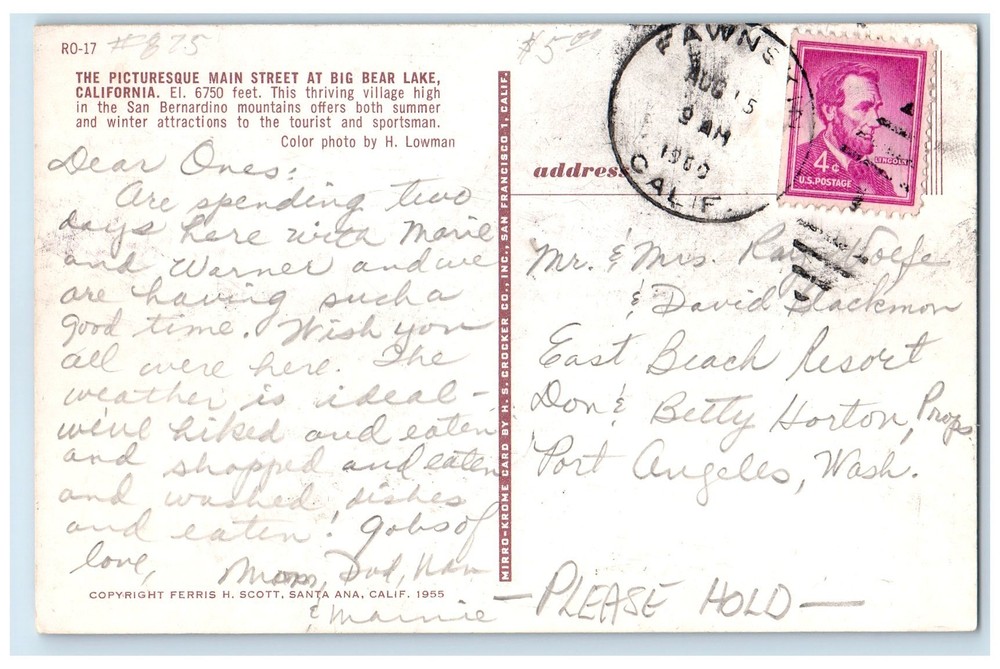 RO-17 #875
$5.00
THE PICTURESQUE MAIN STREET AT BIG BEAR LAKE,
CALIFORNIA. El. 6750 feet. This thriving village high
in the San Bernardino mountains offers both summer
and winter attractions to the tourist and sportsman.
Color photo by H. Lowman
Dear Ones:
Are spending two
days here with Marie
and Warner and we
are having such a
good time. Wish you
all were here. The
weather is ideal -
we've hiked and eaten
and shopped and eaten
and washed dishes
and eaten! Gobs of
love,
Mom, Dad, Nan
& Marnie
COPYRIGHT FERRIS H. SCOTT, SANTA ANA, CALIF. 1955
MIRRO-KROME CARD BY H. S. CROCKER CO., INC., SAN FRANCISCO 1, CALIF.
address
FAWNSKIN
AUG 15
9 AM
1960
CALIF
LINCOLN
4¢
U.S. POSTAGE
Mr. & Mrs. Ray Wolfe
& David Blackmon
East Beach Resort
Don & Betty Horton, Props.
Port Angeles, Wash.
— PLEASE HOLD —